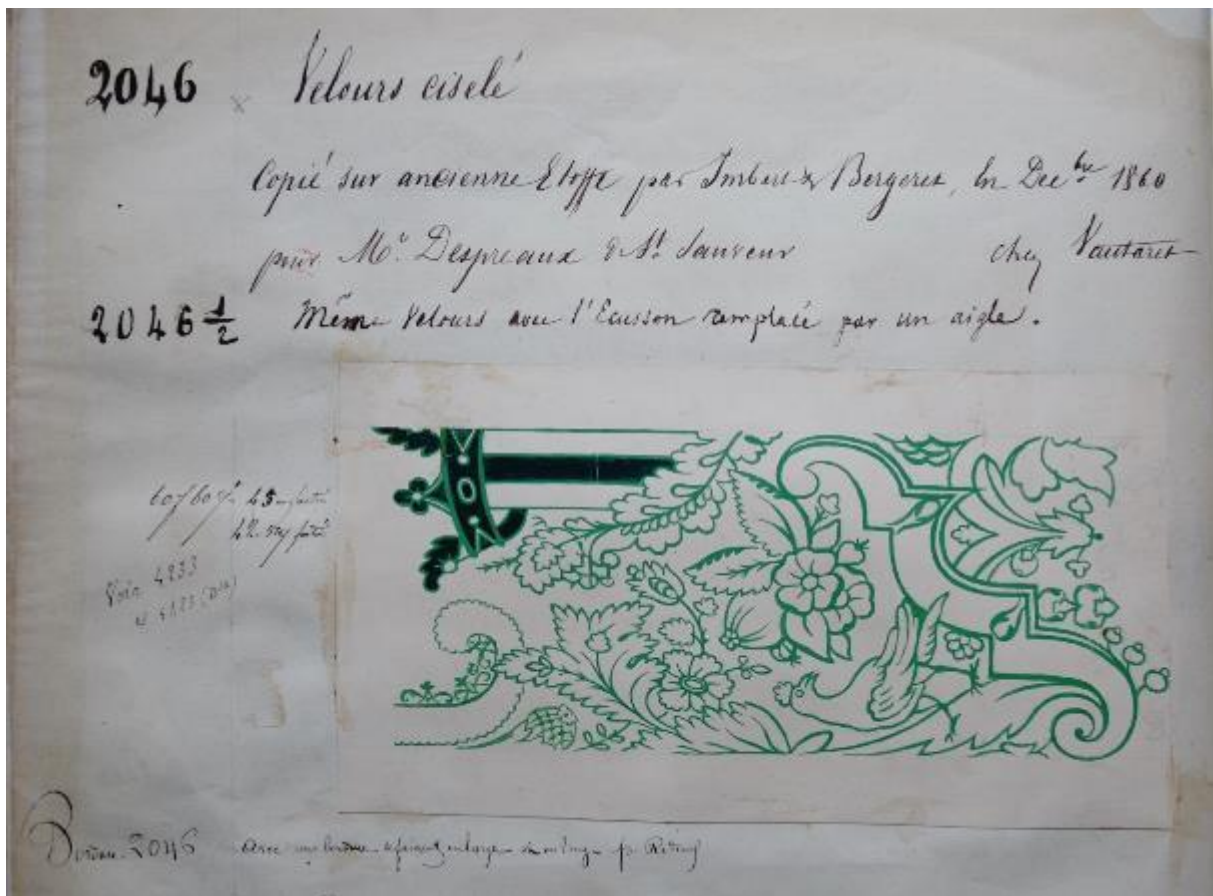 2046 x Velours ciselé
Copié sur ancienne Etoffe par Imbert & Bergeret, en Dec.bre 1860
pour Mr. Despreaux d. St. Sauveur chez Vautaret
2046 1/2 Même Velours avec l'Ecusson remplacé par un aigle.
Voir 4233
et 4123
2046 avec une bordure